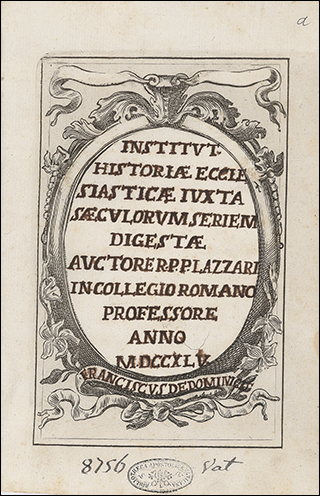 a
INSTITVT.
HISTORIÆ ECCLE
SIASTICÆ IVXTA
SÆCVLORVM SERIEM
DIGESTÆ
AVCTORE R.P.P. LAZZARI
IN COLLEGIO ROMANO
PROFESSORE
ANNO
M.DCCXLV
FRANCISCVS DE DOMINICIS
8756 Vat